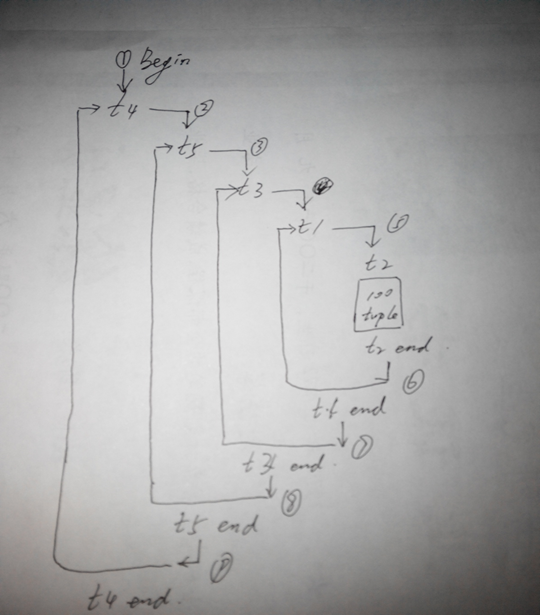 ① Begin
t4 ②
t5 ③
t3
t1 ⑤
t2
100
tuple
t2 end
⑥
t1 end
⑦
t3 end
⑧
t5 end
⑨
t4 end